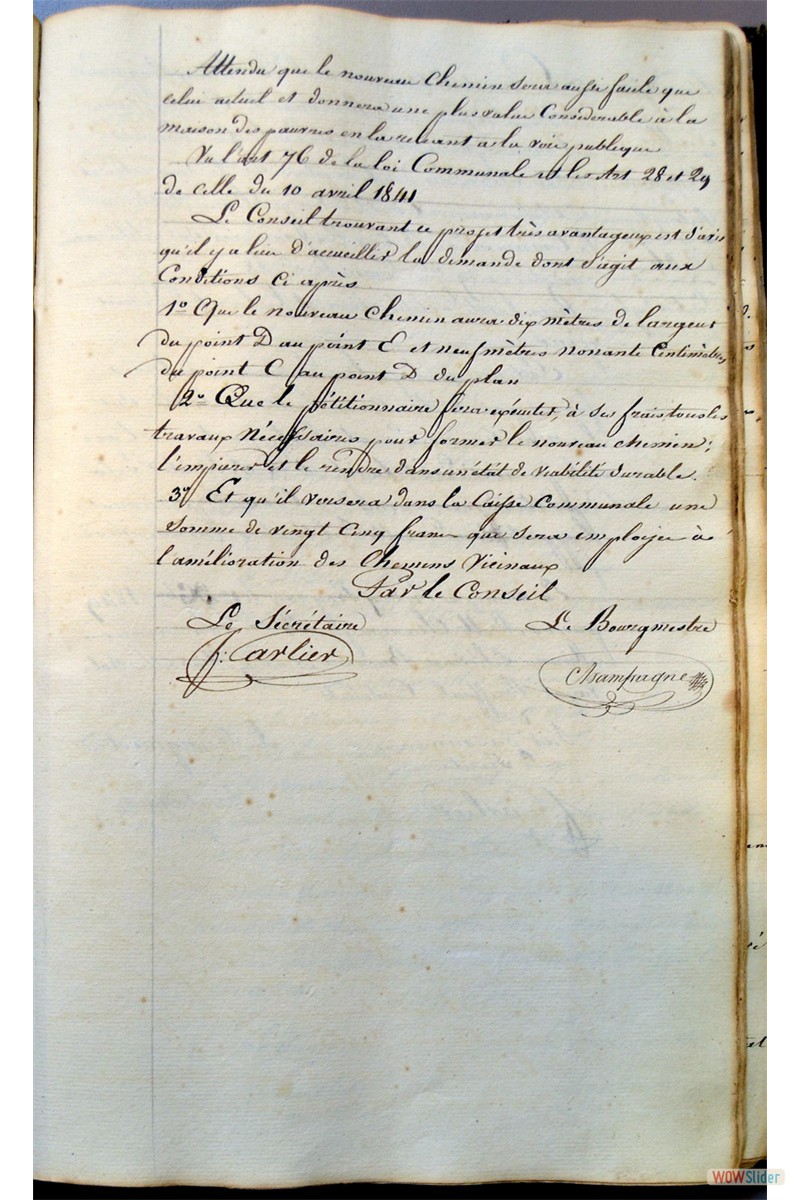 Attendu que le nouveau chemin sera aussi facile que
celui actuel et donnera une plus value Considérable à la
maison des pauvres en la reliant a la voie publique
Vu l'art 76 de la loi Communale et les Art 28 et 29
de celle du 10 avril 1841
Le Conseil trouvant ce projet très avantageux est d'avis
qu'il y a lieu d'acueillir la demande dont s'agit aux
Conditions ci après
1º Que le nouveau chemin aura dix mètres de largeur
du point D au point E et neuf mètres nonante Centimètres
du point C au point D du plan
2º Que le pétitionnaire fera exécuter, à ses frais tous les
travaux Nécessaires pour former le nouveau chemin;
l'empierer et le rendre dans un état de viabilité durable.
3º Et qu'il versera dans la Caisse Communale une
Somme de vingt Cinq francs que sera employée à
l'amélioration des Chemens Vicinaux
Par le Conseil
Le Sécrétaire Le Bourgmestre
J. Carlier Champagne
WOWSlider